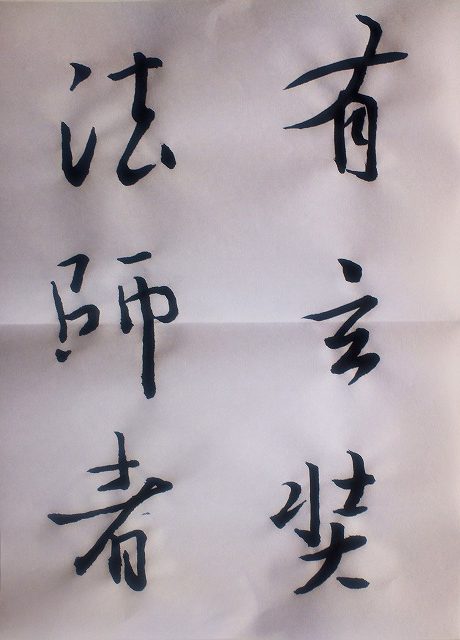 有玄奘
法師者